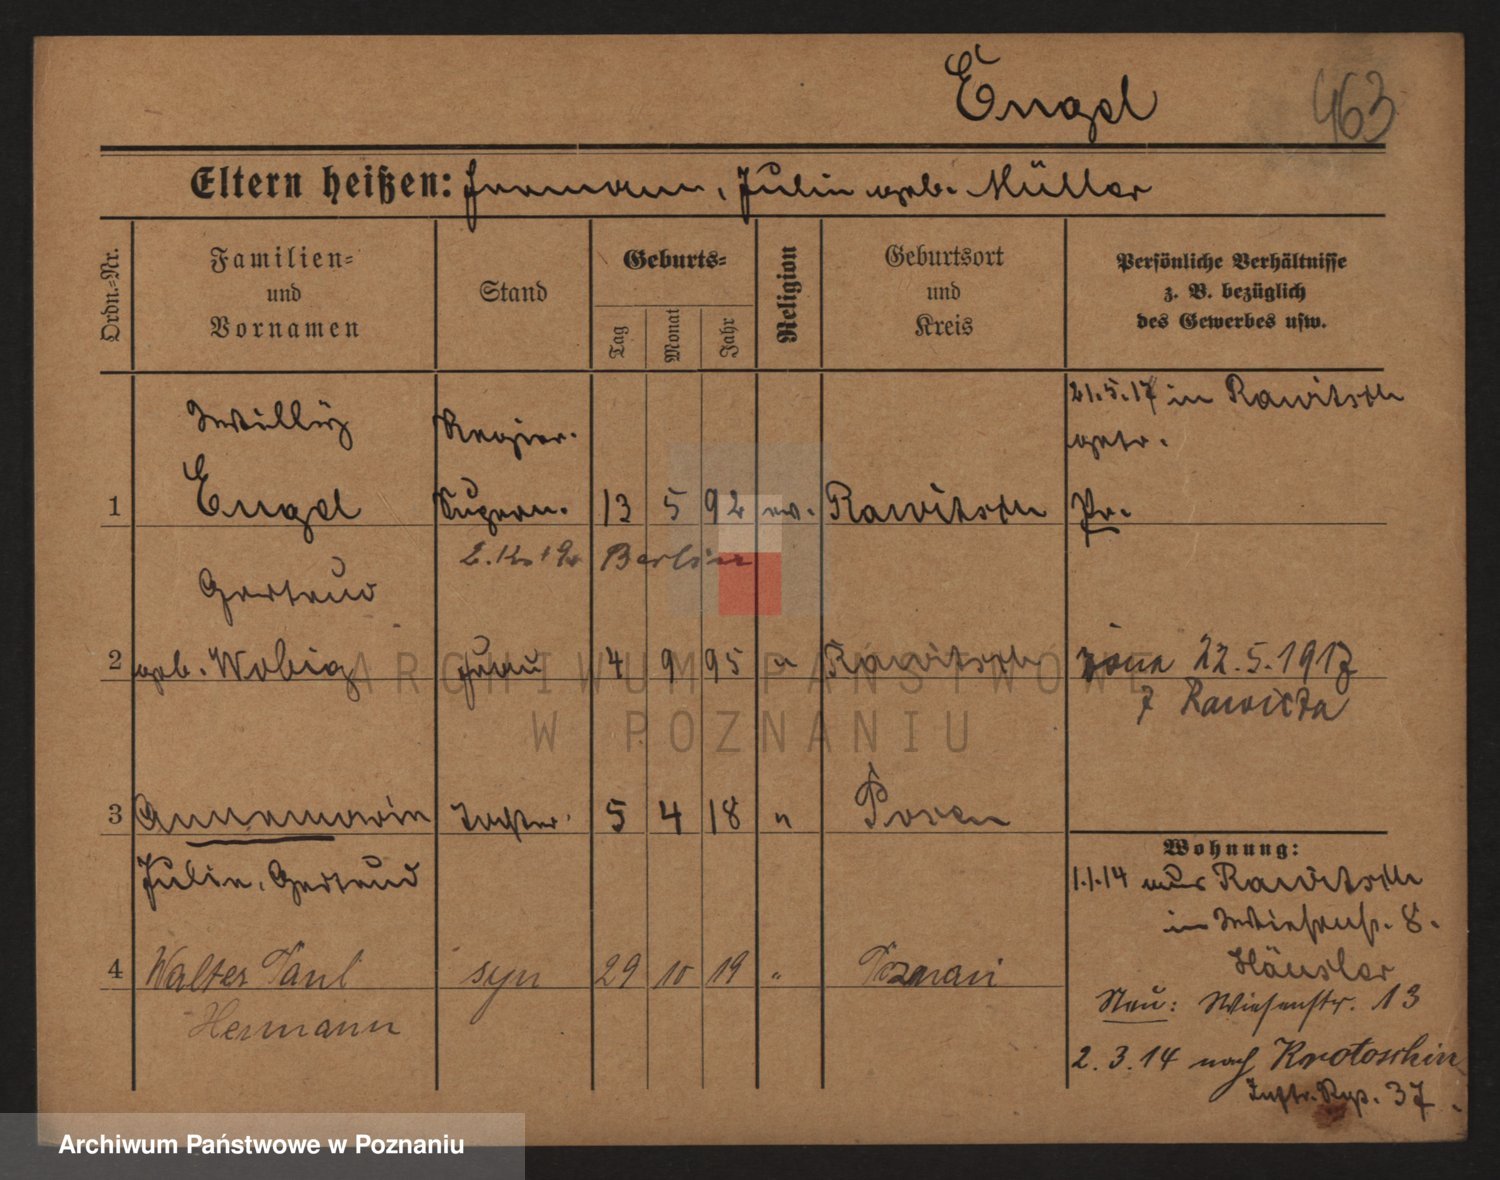 Engel 463
Eltern heißen: Hermann, Julie geb. Müller
Ordn.-Nr.
Familien-
und
Vornamen
Stand
Geburts-
Tag
Monat
Jahr
Religion
Geburtsort
und
Kreis
Persönliche Verhältnisse
z. B. bezüglich
des Gewerbes usw.
21.5.17 in Rawitsch
getr.
Willy Regier.
1 Engel Supern. 13 5 92 ev. Rawitsch Pr.
Berlin
Gertrud
2 geb. Wobig Frau 4 9 95 " Rawitsch żona 22.5.1917
z Rawicza
3 Annemarie Tochter 5 4 18 " Posen
Julie, Gertrud
4 Walter Paul syn 29 10 19 " Poznań
Hermann
Wohnung:
1.1.14 aus Rawitsch
in Wiesenstr. 8.
Häusler
Neu: Wiesenstr. 13
2.3.14 nach Krotoschin
Inftr. Rgt. 37.
ARCHIWUM PAŃSTWOWE
W POZNANIU
Archiwum Państwowe w Poznaniu